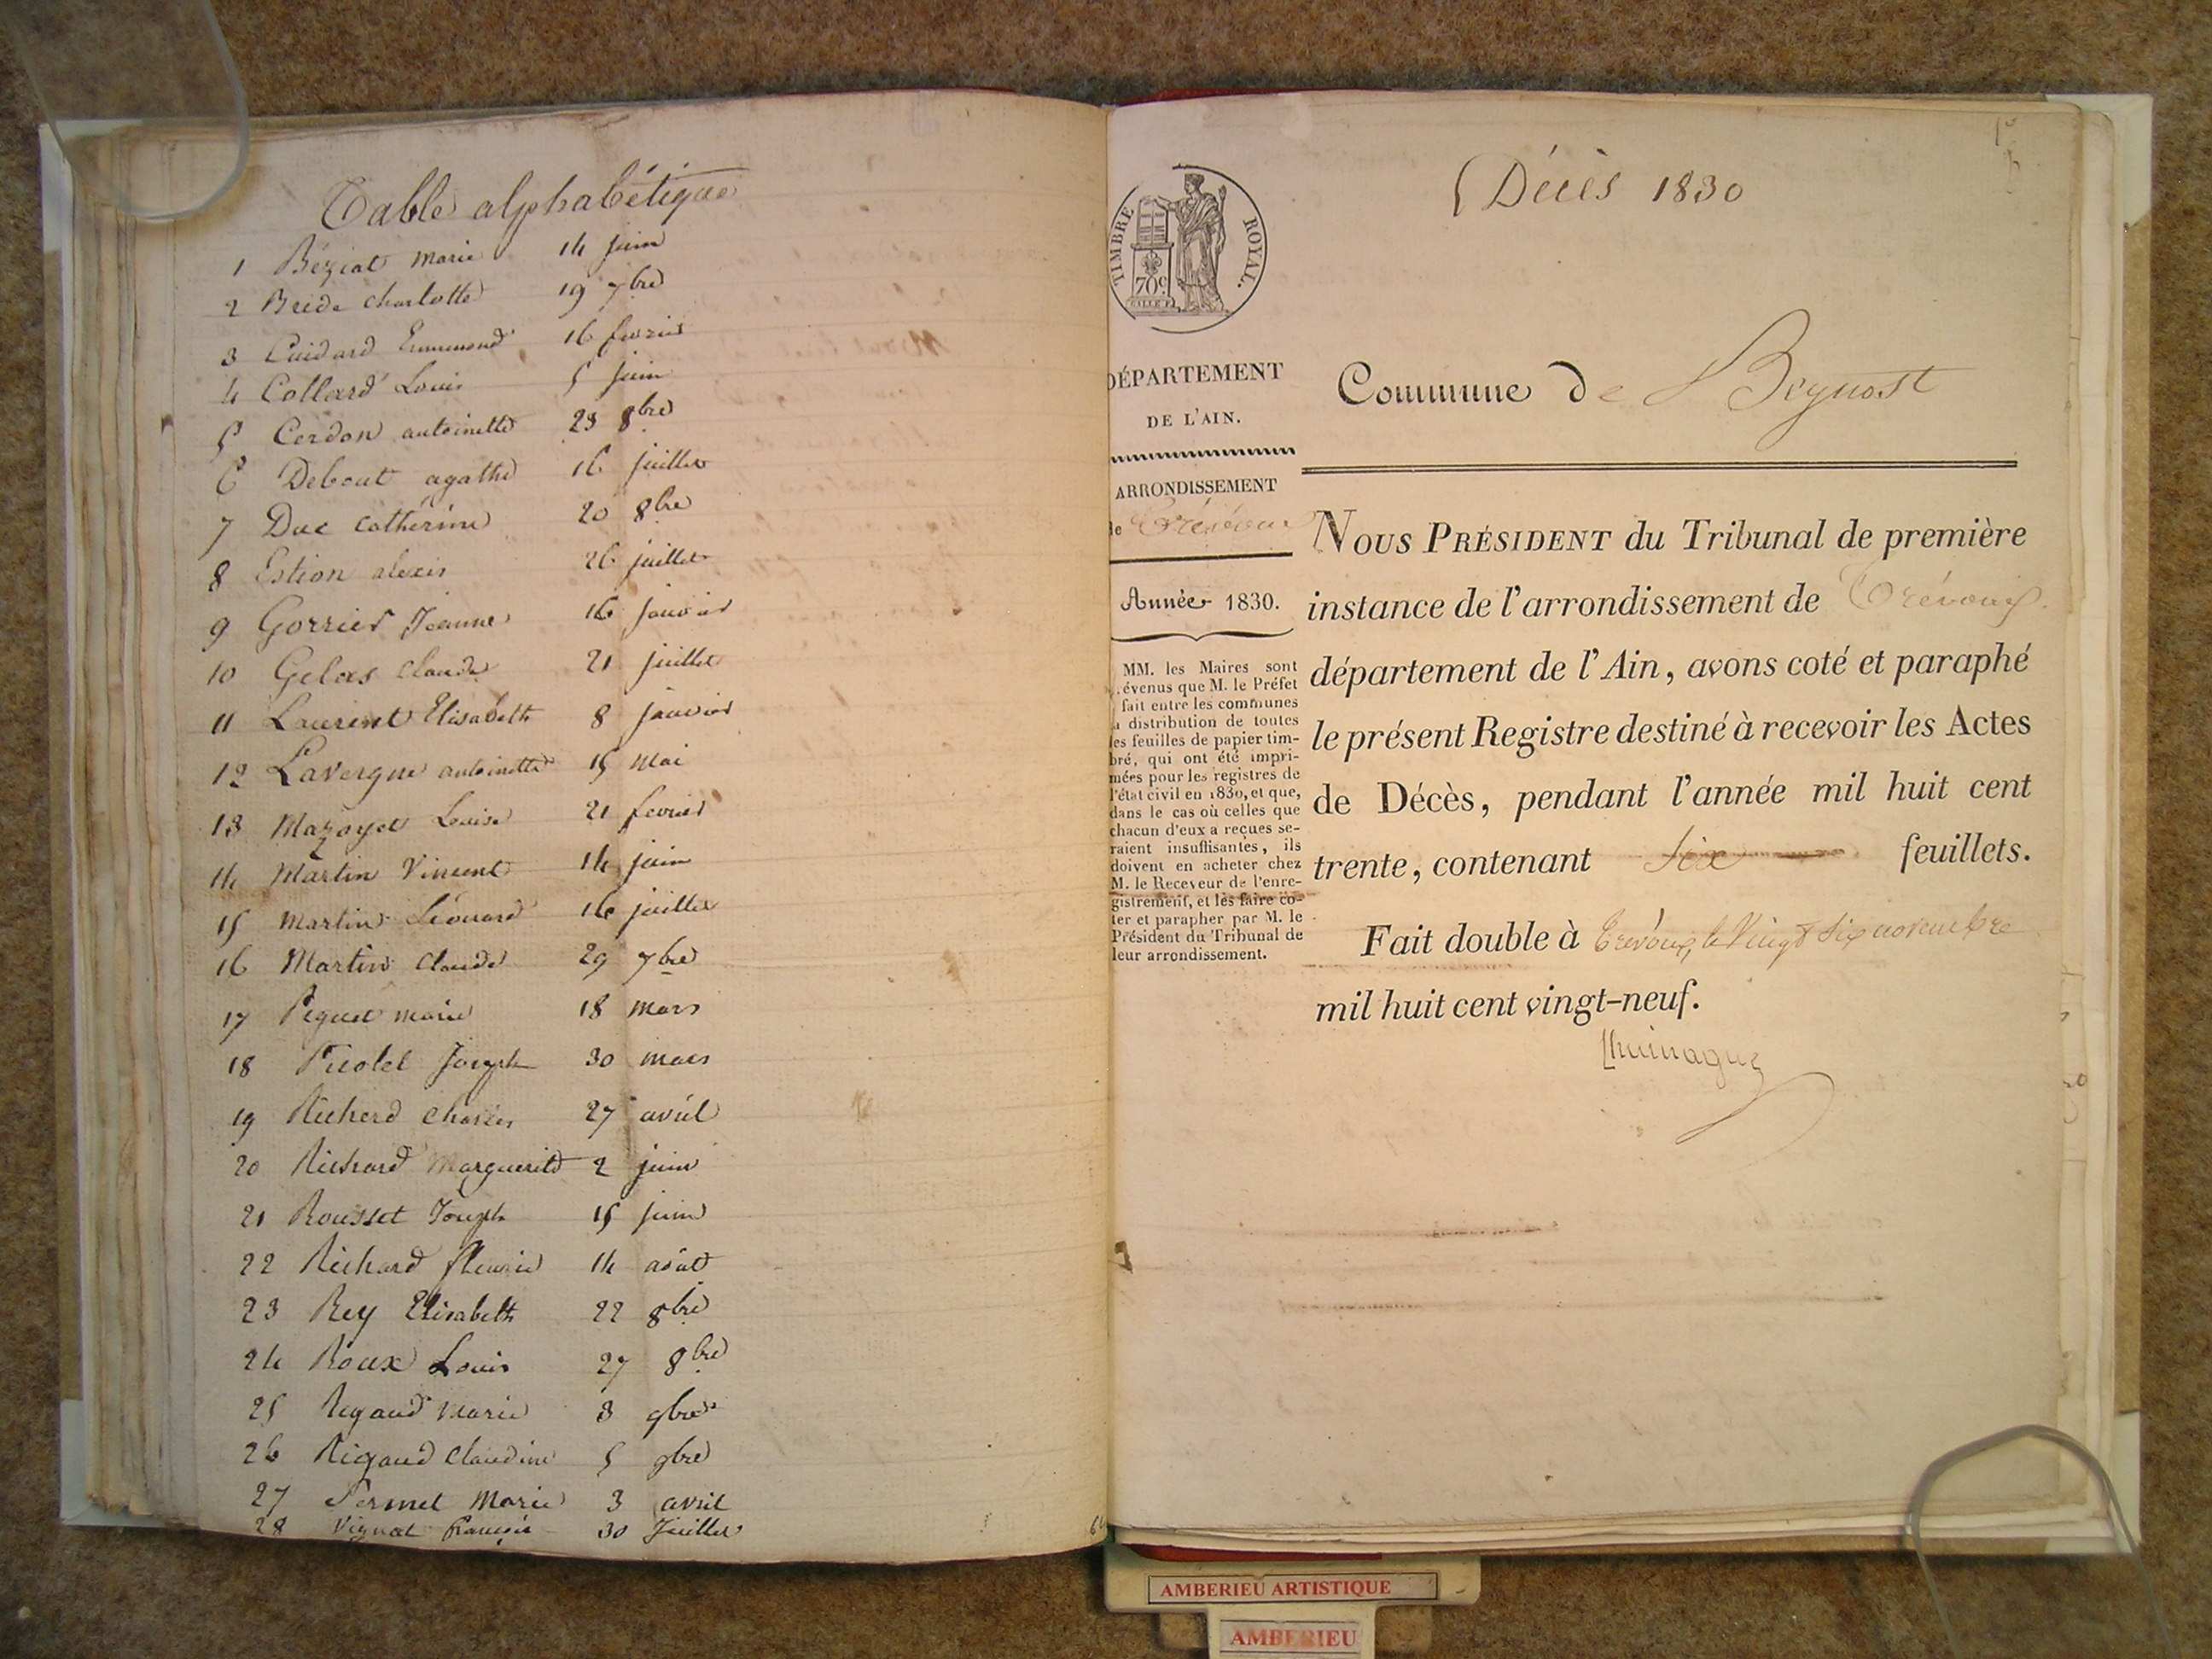 Table alphabétique
1 Béziat Marie 14 juin
2 Bride Charlotte 19 7bre
3 Cuidard Ennemond 16 fevrier
4 Collard Louis 5 juin
5 Cerdon antoinette 23 8bre
6 Debout agathe 16 juillet
7 Duc Cathérine 20 8bre
8 Estion alexis 26 juillet
9 Gorrier Jeanne 16 janvier
10 Gelas Claude 21 juillet
11 Laurent Elisabeth 8 janvier
12 Lavergne antoinette 15 Mai
13 Mazoyer Louise 21 fevrier
14 Martin Vincent 14 juin
15 Martin Léonard 16 juillet
16 Martin Claude 29 7bre
17 Piquet marie 18 mars
18 Picolet Joseph 30 mars
19 Richerd Charles 27 avril
20 Richard Marguerite 2 juin
21 Rousset Joseph 15 juin
22 Richard fleurie 14 août
23 Rey Elisabeth 22 8bre
24 Roux Louis 27 8bre
25 Rigaud Marie 3 9bre
26 Rigaud Claudine 5 9bre
27 Permet Marie 3 avril
28 Vignat 30 Juillet
Décès 1830
TIMBRE ROYAL.
70c
DÉPARTEMENT
DE L'AIN.
ARRONDISSEMENT
de Trévoux
Année 1830.
MM. les Maires sont
évenus que M. le Préfet
fait entre les communes
a distribution de toutes
les feuilles de papier tim-
bré, qui ont été impri-
mées pour les registres de
l'état civil en 1830, et que,
dans le cas où celles que
chacun d'eux a reçues se-
raient insuffisantes, ils
doivent en acheter chez
M. le Receveur de l'enre-
gistrement, et les faire co-
ter et parapher par M. le
Président du Tribunal de
leur arrondissement.
Commune de Beynost
NOUS PRÉSIDENT du Tribunal de première
instance de l'arrondissement de Trévoux
département de l'Ain, avons coté et paraphé
le présent Registre destiné à recevoir les Actes
de Décès, pendant l'année mil huit cent
trente, contenant Six feuillets.
Fait double à Trévoux, le Vingt Six novembre
mil huit cent vingt-neuf.
AMBERIEU ARTISTIQUE
AMBERIEU